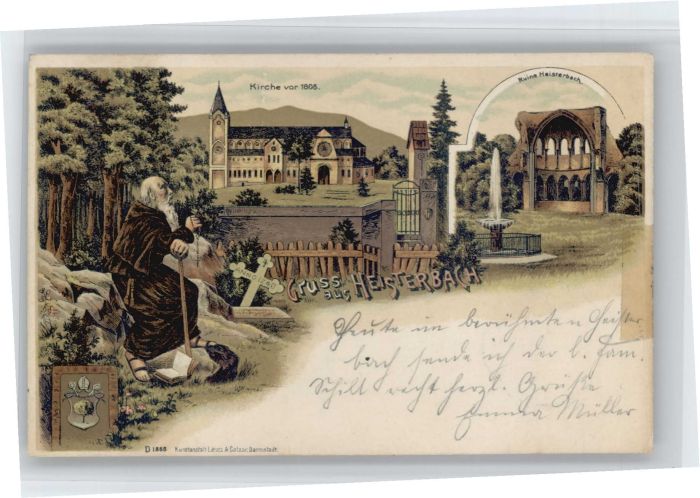 Kirche vor 1808.
Ruine Heisterbach.
Gruss
aus HEISTERBACH
Heute im berühmten Heister
bach sende ich der l. Fam.
Schilt recht herzl. Grüße
Emma Müller
D 1868 Kunstanstalt Lautz & Balzar, Darmstadt.